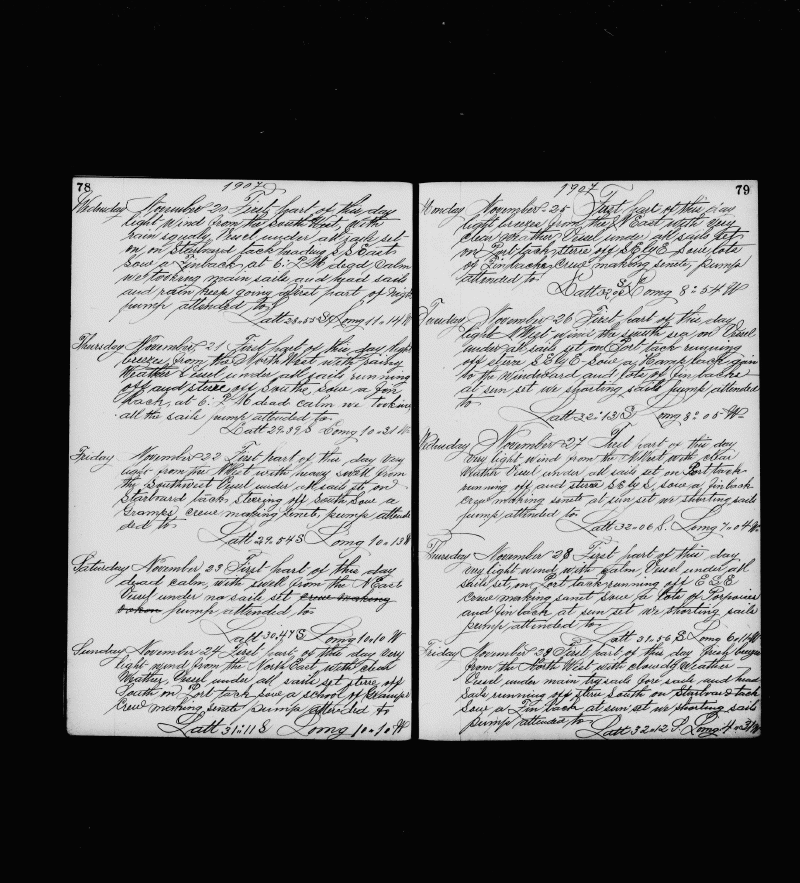 78
1907
Wednesday November 20 First part of this day
light wind from the South West with
rain squally Vessel under all sails set
on on Starboard tack heading S S East
Sow a Finback at 6: P M degd Calm
we tooking main sails and head sails
and rain keep going first part of night
pump attended to
Latt 28=55 S Long 11=14 W
Thursday November 21 First part of this day light
breeze from the North West with
Weather Vessel under all sails running
off and steree off Southe, Sow a Fin
Back, at 6: P M dad calm we tooking
all the sails pump attended to
Latt 29.39 S Long 10=31 W
Friday November 22 First part of this day very
light from the West with heavy swell from
the Southwest Vessel under all sails set on
Starboard tack steering off South Sow a
Gramps, crew making sinets, pump attende
ded to
Latt 29.54 S Long 10=13 W
Saturday November 23 First part of this day
dead calm, with swell from the N East
Vessel under no sails set crew making
token pump attended to
Latt 30:47 S Long 10=10 W
Sunday November 24 First part of this day very
light wind from the North East with clear
Weather Vessel under all sails set steree off
South on Port tack Sow a school of Gramps
Crew making sinets pump attended to
Latt 31=11 S Long 10=10 W
1907
79
Monday November=25 First part of this day
light breeze from the N East with very
clear Weather, Vessel under all sails set
on Port tack steree off S E by E Sow lots
of Finbacks, Crew making sinets, pump
attended to
Latt Long 8=54 W
Tuesday November=26 First part of this day
light N West wind the smith sea on Vessel
under all sails set on Port tack running
off steree S E by E Sow a Hump back goin
to the windward and lots of finbacks
at sun set we shorting sails pump attended
to
Latt 32=13 S Long 8=05 W
Wednesday November=27 First part of this day
very light wind from the N West with clear
Weather Vessel under all sails set on Port tack
running off and steree S E by S, sow a finback
crew making sinets at sun set we shorting sails
pump attended to
Latt 32=06 S. Long 7=04 W
Thursday November 28 First part of this day
very light wind with calm, Vessel under all
sails set, on Port tack running off E S E
Crew making sanet Sow a lots of Porpoises
and fin back at sun set we shorting sails
pump attended to
Latt 31=56 S Long 6=14 W
Friday November=29 First part of this day fresh breeze
from the North West with cloudy Weather
Vessel under main trysails fore sails and head
sails running off steree South on Starboard tack
sow a Fin back at sun set we shorting sails
pump attended to
Latt 32=12 S Long 4=31 W